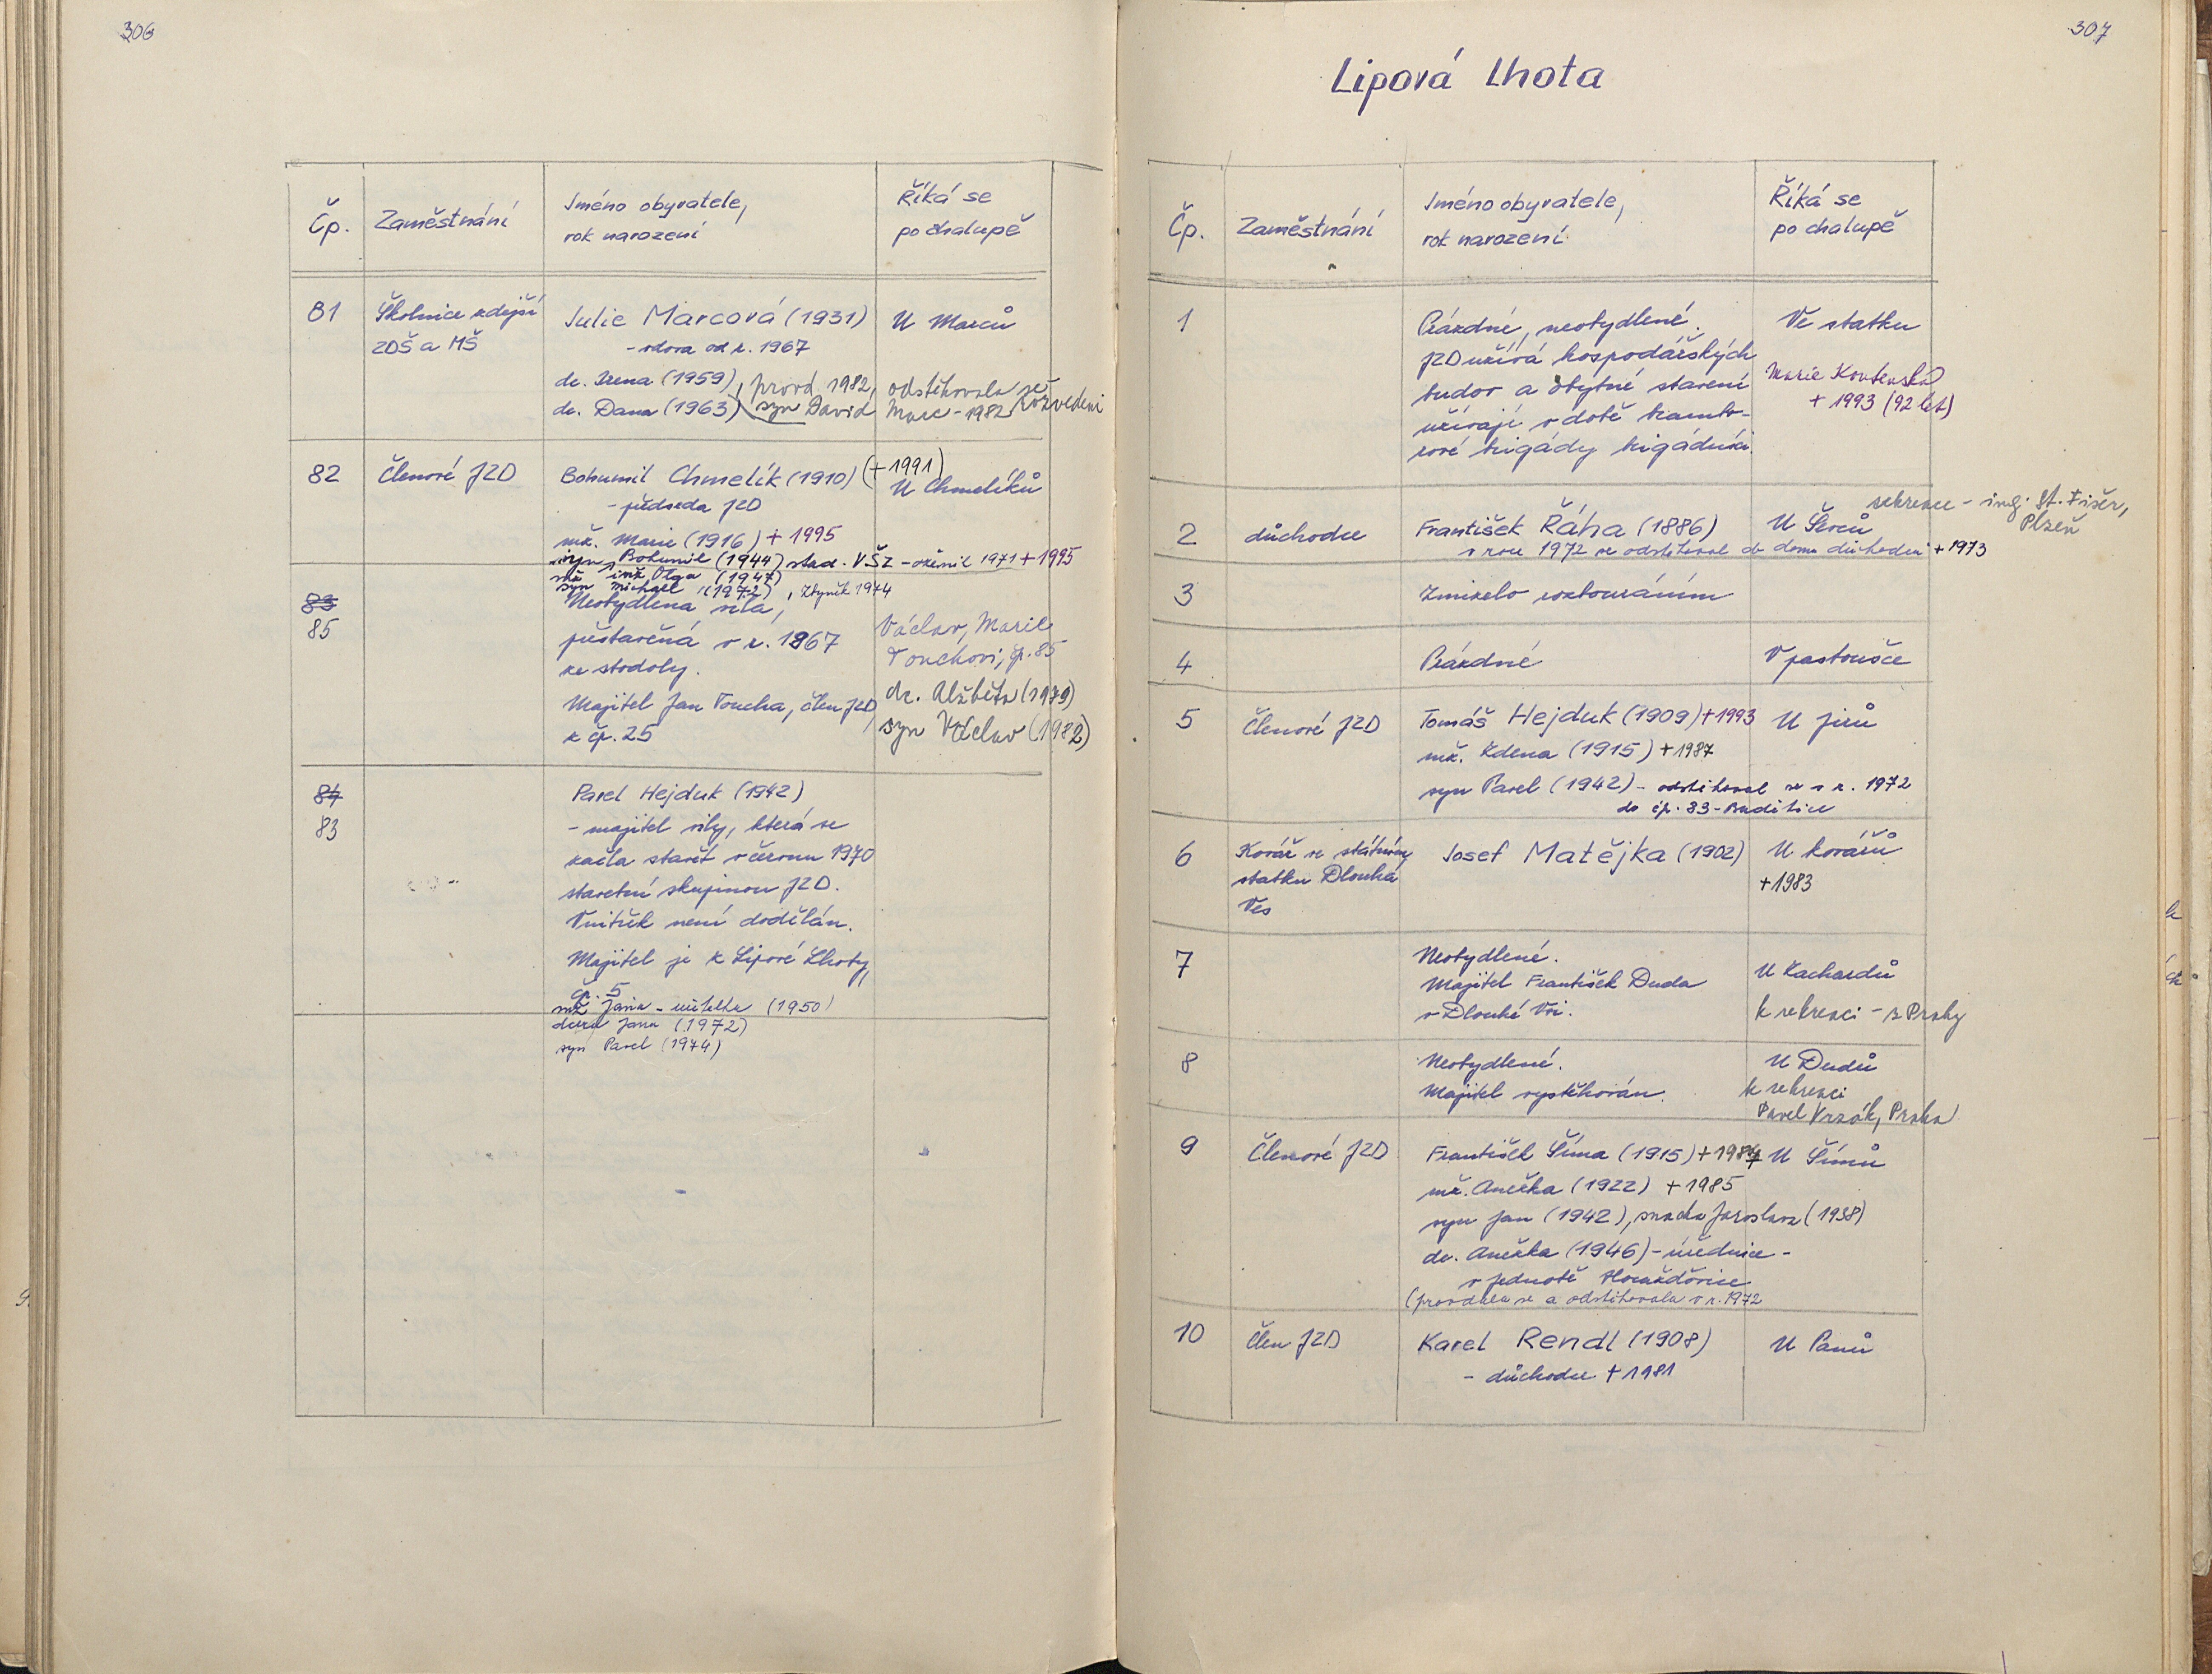 306
Čp.
Zaměstnání
Jméno obyvatele,
rok narození
Říká se
po chalupě
81
Školnice zdejší
ZDŠ a MŠ
Julie Marcová (1931)
- vdova od r. 1967
dc. Irena (1959), provd. 1982, odstěhovala se
dc. Dana (1963) syn David Marc - 1982 rozvedeni
U Marců
82
Členové JZD
Bohumil Chmelík (1910) (+ 1991)
- předseda JZD
U Chmelíků
mž. Marie (1916) + 1995
syn Bohumil (1944) stud. VŠZ - oženil 1971 + 1995
mž inž Olga (1947)
syn Michael (1972), Zbyněk 1974
83
85
Neobydlená vila,
přestavěná v r. 1967
ze stodoly.
Majitel Jan Toucha, člen JZD
z čp. 25
Václav, Marie
Touchovi, čp. 85
dc. Alžběta (1979)
syn Václav (1982)
84
83
Pavel Hejduk (1942)
- majitel vily, která se
začla stavět v červnu 1970
stavební skupinou JZD.
Vnitřek není dodělán.
Majitel je z Lipové Lhoty,
čp. 5
mž Jana - učitelka (1950)
dcera Jana (1972)
syn Pavel (1974)
307
Lipová Lhota
Čp.
Zaměstnání
Jméno obyvatele,
rok narození
Říká se
po chalupě
1
Prázdné, neobydlené.
JZD užívá hospodářských
budov a obytné stavení
užívají v době brambo-
rové brigády brigádníci.
Ve statku
Marie Koutenská
+ 1993 (92 let)
2
důchodce
František Řáha (1886)
U Ševců
rekreace - ing. St. Fišer,
Plzeň
v roce 1972 se odstěhoval do domu důchodců + 1973
3
Zmizelo rozbouráním
4
Prázdné
V pastoušce
5
Členové JZD
Tomáš Hejduk (1909) + 1993
U Jirů
mž. Zdena (1915) + 1987
syn Pavel (1942) - odstěhoval se v r. 1972
do čp. 83 - Budětice
6
Kovář ve státním
statku Dlouhá
Ves
Josef Matějka (1902)
U kovářů
+ 1983
7
Neobydlené.
Majitel František Duda
v Dlouhé Vsi.
U Kachardů
k rekreaci - z Prahy
8
Neobydlené.
Majitel vystěhován.
U Dudů
k rekreaci
Pavel Vrzák, Praha
9
Členové JZD
František Šíma (1915) + 1984
U Šímů
mž. Anežka (1922) + 1985
syn Jan (1942), snacha Jaroslava (1938)
dc. Anežka (1946) - úřednice -
v Jednotě Horažďovice
(provdala se a odstěhovala v r. 1972
10
Člen JZD
Karel Rendl (1908)
- důchodce + 1981
U Panů